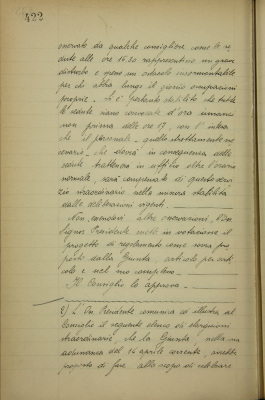 422
osservato da qualche consigliere come le se
dute alle ore 16.30 rappresentino un grave
disturbo e spesso un ostacolo insormontabile
per chi abbia lungo il giorno occupazioni
proprie. È pertanto stabilito che tutte
le sedute siano convocate d'ora innanzi
non prima delle ore 17, con l'intesa
che il personale, quello strettamente ne
cessario, che dovrà in conseguenza delle
sedute trattenersi in ufficio oltre l'orario
normale, sarà compensato di questo servi
zio straordinario nella misura stabilita
dalle deliberazioni vigenti.
Non essendovi altre osservazioni, l'On.
Signor Presidente mette in votazione il
progetto di regolamento come venne pro
posto dalla Giunta, articolo per arti
colo e nel suo complesso.
Il Consiglio lo approva.
2) L'On. Presidente comunica ed illustra al
Consiglio il seguente elenco di elargizioni
straordinarie, che la Giunta, nella sua
adunanza del 16 aprile corrente, avrebbe
proposto di fare, allo scopo di celebrare